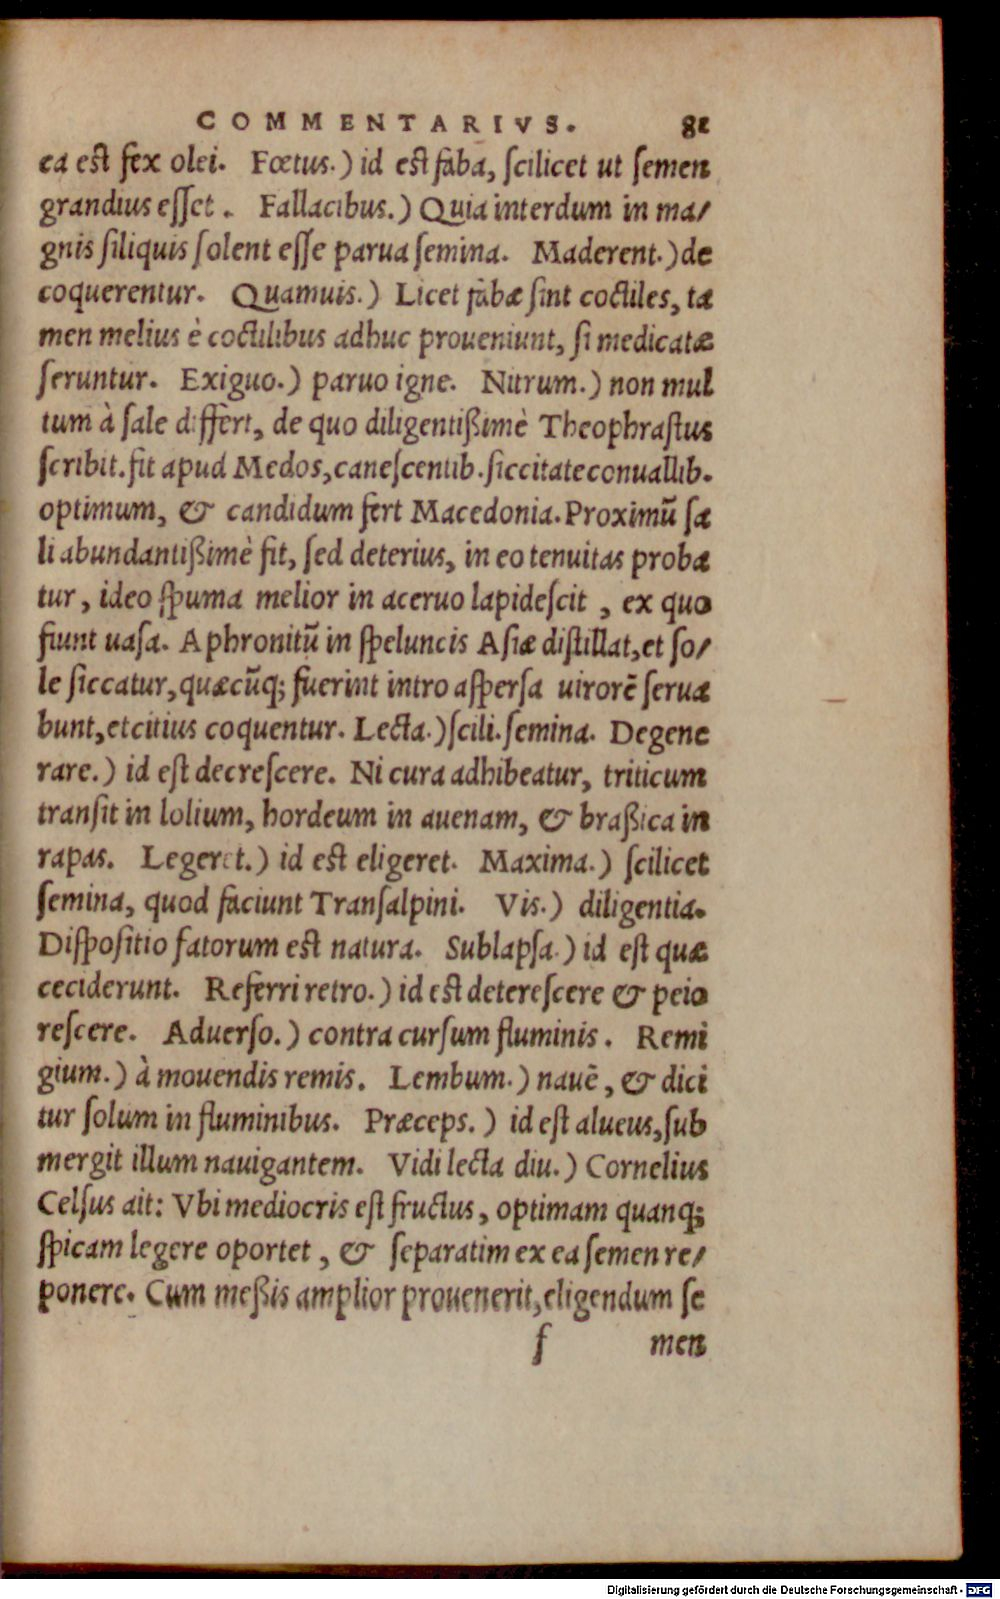 COMMENTARIVS. 81
ea est fex olei. Fœtus.) id est faba, scilicet ut semen
grandius esset. Fallacibus.) Quia interdum in ma/
gnis siliquis solent esse parua semina. Maderent.) de
coquerentur. Quamuis.) Licet fabæ sint coctiles, ta
men melius è coctilibus adhuc proueniunt, si medicatæ
seruntur. Exiguo.) paruo igne. Nitrum.) non mul
tum à sale differt, de quo diligentißimè Theophrastus
scribit. fit apud Medos, canescentib. siccitate conuallib.
optimum, & candidum fert Macedonia. Proximũ sa
li abundantißimè fit, sed deterius, in eo tenuitas proba
tur, ideo spuma melior in aceruo lapidescit, ex quo
fiunt uasa. Aphronitũ in speluncis Asiæ distillat, et so/
le siccatur, quæcũq; fuerint intro aspersa uirorẽ serua
bunt, et citius coquentur. Lecta.) scili. semina. Degene
rare.) id est decrescere. Ni cura adhibeatur, triticum
transit in lolium, hordeum in auenam, & braßica in
rapas. Legeret.) id est eligeret. Maxima.) scilicet
semina, quod faciunt Transalpini. Vis.) diligentia.
Dispositio fatorum est natura. Sublapsa.) id est quæ
ceciderunt. Referri retro.) id est deterescere & peio
rescere. Aduerso.) contra cursum fluminis. Remi
gium.) à mouendis remis. Lembum.) nauẽ, & dici
tur solum in fluminibus. Præceps.) id est alueus, sub
mergit illum nauigantem. Vidi lecta diu.) Cornelius
Celsus ait: Vbi mediocris est fructus, optimam quanq;
spicam legere oportet, & separatim ex ea semen re/
ponere. Cum meßis amplior prouenerit, eligendum se
f men
Digitalisierung gefördert durch die Deutsche Forschungsgemeinschaft - DFG